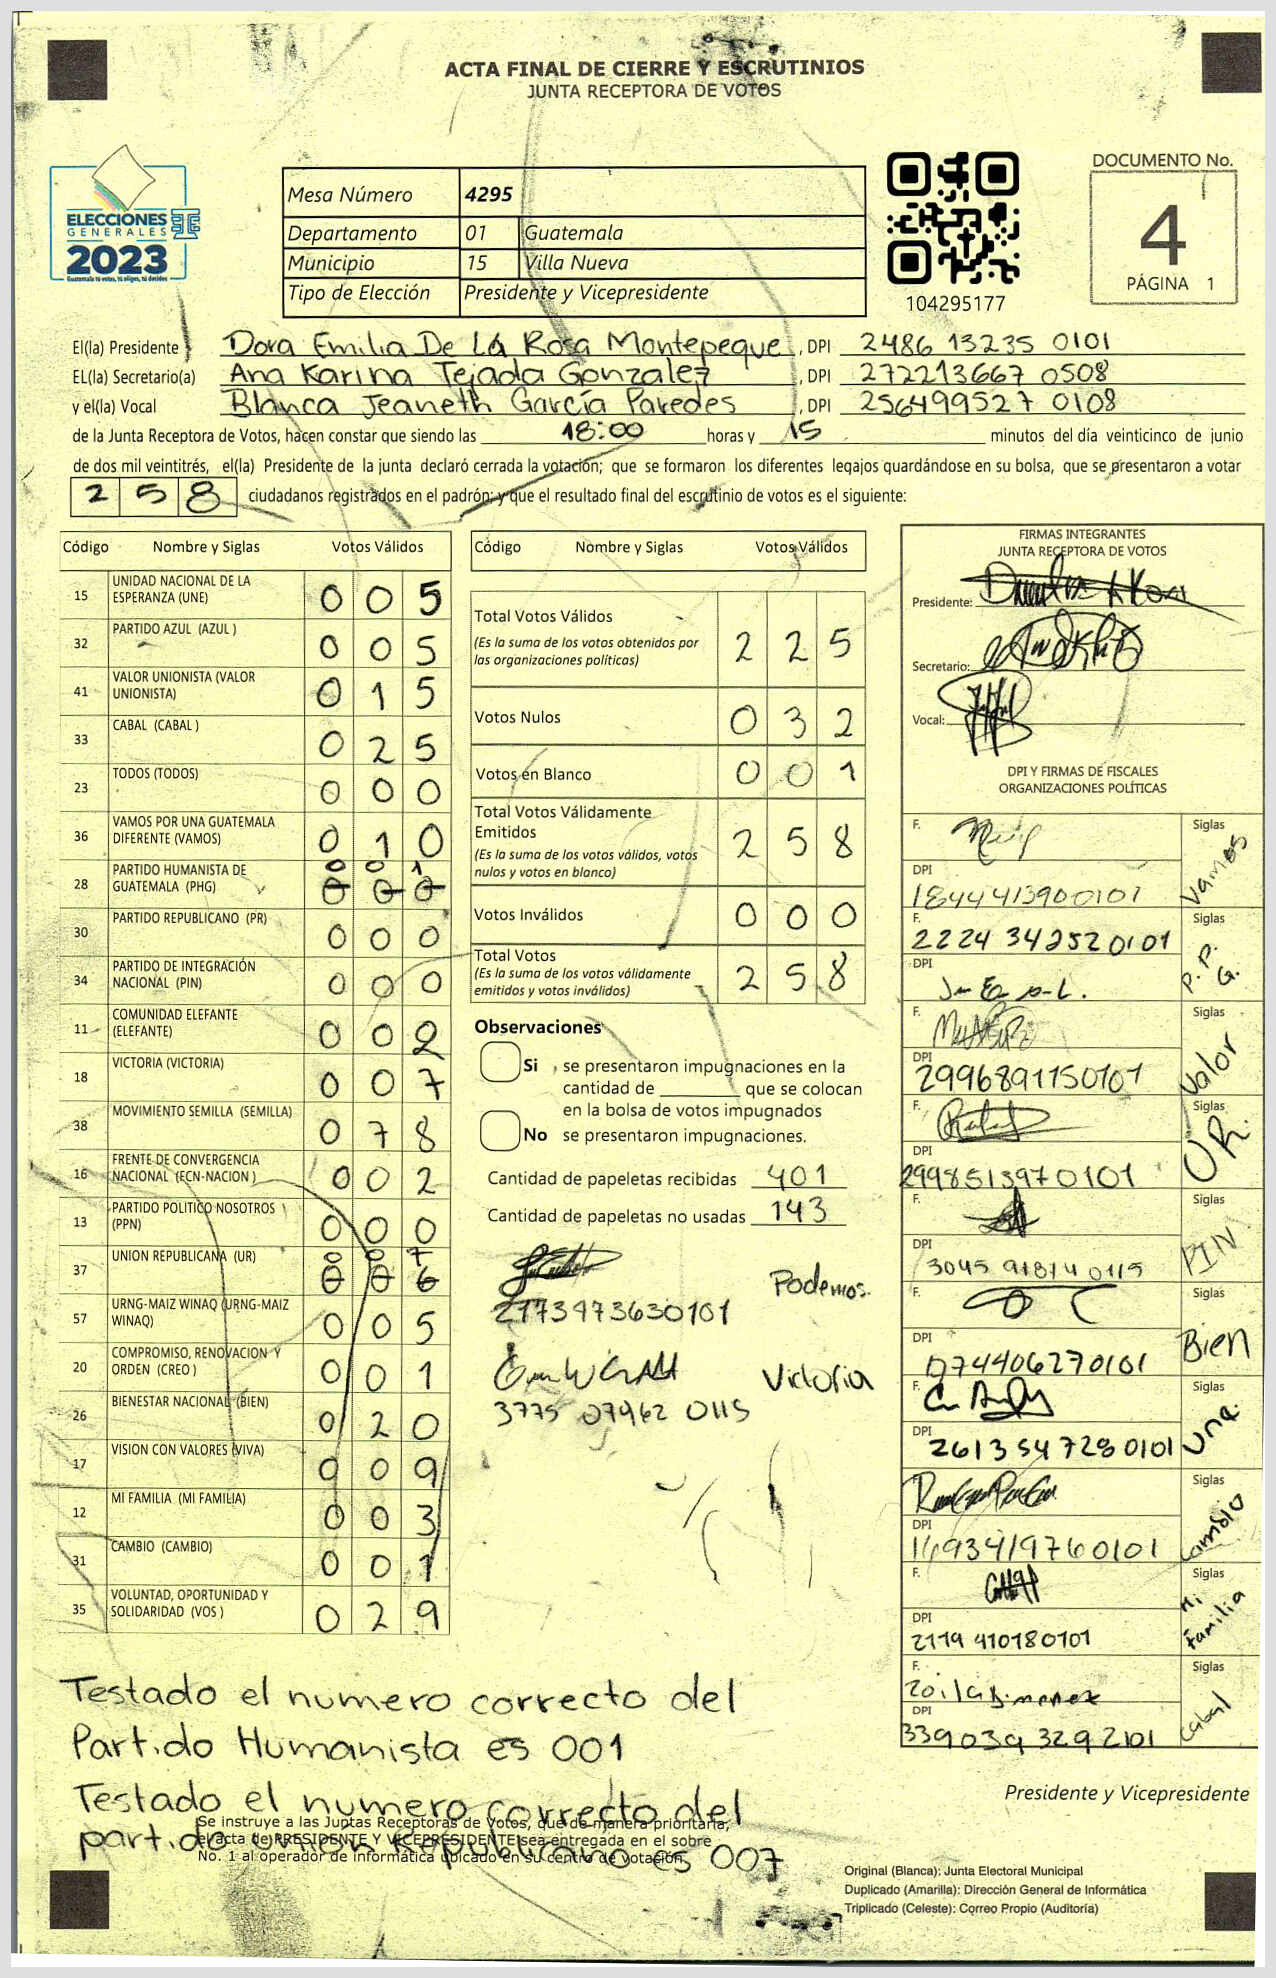 ACTA FINAL DE CIERRE Y ESCRUTINIOS
JUNTA RECEPTORA DE VOTOS
ELECCIONES
GENERALES
2023
Guatemala tú votas, tú eliges, tú decides
Mesa Número 4295
Departamento 01 Guatemala
Municipio 15 Villa Nueva
Tipo de Elección Presidente y Vicepresidente
104295177
DOCUMENTO No.
4
PÁGINA 1
El(la) Presidente Dora Emilia De La Rosa Montepeque, DPI 2486 13235 0101
EL(la) Secretario(a) Ana Karina Tejada Gonzalez, DPI 272213667 0508
y el(la) Vocal Blanca Jeaneth García Paredes, DPI 256499527 0108
de la Junta Receptora de Votos, hacen constar que siendo las 18:00 horas y 15 minutos del día veinticinco de junio
de dos mil veintitrés, el(la) Presidente de la junta declaró cerrada la votación; que se formaron los diferentes legajos guardándose en su bolsa, que se presentaron a votar
258 ciudadanos registrados en el padrón; y que el resultado final del escrutinio de votos es el siguiente:
Código Nombre y Siglas Votos Válidos
15 UNIDAD NACIONAL DE LA ESPERANZA (UNE) 0 0 5
32 PARTIDO AZUL (AZUL ) 0 0 5
41 VALOR UNIONISTA (VALOR UNIONISTA) 0 1 5
33 CABAL (CABAL ) 0 2 5
23 TODOS (TODOS) 0 0 0
36 VAMOS POR UNA GUATEMALA DIFERENTE (VAMOS) 0 1 0
28 PARTIDO HUMANISTA DE GUATEMALA (PHG) 0 0 1 0 0 0
30 PARTIDO REPUBLICANO (PR) 0 0 0
34 PARTIDO DE INTEGRACIÓN NACIONAL (PIN) 0 0 0
11 COMUNIDAD ELEFANTE (ELEFANTE) 0 0 2
18 VICTORIA (VICTORIA) 0 0 7
38 MOVIMIENTO SEMILLA (SEMILLA) 0 7 8
16 FRENTE DE CONVERGENCIA NACIONAL (FCN-NACION ) 0 0 2
13 PARTIDO POLITICO NOSOTROS (PPN) 0 0 0
37 UNION REPUBLICANA (UR) 0 0 7 0 0 6
57 URNG-MAIZ WINAQ (URNG-MAIZ WINAQ) 0 0 5
20 COMPROMISO, RENOVACION Y ORDEN (CREO ) 0 0 1
26 BIENESTAR NACIONAL (BIEN) 0 2 0
17 VISION CON VALORES (VIVA) 0 0 9
12 MI FAMILIA (MI FAMILIA) 0 0 3
31 CAMBIO (CAMBIO) 0 0 1
35 VOLUNTAD, OPORTUNIDAD Y SOLIDARIDAD (VOS ) 0 2 9
Código Nombre y Siglas Votos Válidos
Total Votos Válidos 2 2 5
(Es la suma de los votos obtenidos por
las organizaciones políticas)
Votos Nulos 0 3 2
Votos en Blanco 0 0 1
Total Votos Válidamente
Emitidos 2 5 8
(Es la suma de los votos válidos, votos
nulos y votos en blanco)
Votos Inválidos 0 0 0
Total Votos 2 5 8
(Es la suma de los votos válidamente
emitidos y votos inválidos)
Observaciones
Si , se presentaron impugnaciones en la
cantidad de ________ que se colocan
en la bolsa de votos impugnados
No se presentaron impugnaciones.
Cantidad de papeletas recibidas 401
Cantidad de papeletas no usadas 143
Podemos.
2173973630101
Victoria
3775 07962 0115
FIRMAS INTEGRANTES
JUNTA RECEPTORA DE VOTOS
Presidente:
Secretario:
Vocal:
DPI Y FIRMAS DE FISCALES
ORGANIZACIONES POLÍTICAS
F. Siglas
Vamos
DPI
1844413900101
F. Siglas
2224 342520101
P.P.G.
DPI
F. Siglas
Valor
DPI
2996891150101
F. Siglas
UR.
DPI
2998513970101
F. Siglas
PIN
DPI
3045 918140115
F. Siglas
Bien
DPI
1774406270101
F. Siglas
Une.
DPI
2613547280101
F. Siglas
Cambio
DPI
1693419760101
F. Siglas
Mi Familia
DPI
2119 410180101
F. Siglas
Zoila Jimenez
Cabal
DPI
339039 3292101
Testado el numero correcto del
Partido Humanista es 001
Testado el numero correcto del
partido Unión Republicano es 007
Se instruye a las Juntas Receptoras de Votos, que de manera prioritaria,
el acta de PRESIDENTE Y VICEPRESIDENTE sea entregada en el sobre
No. 1 al operador de informática ubicado en su centro de votación.
Presidente y Vicepresidente
Original (Blanca): Junta Electoral Municipal
Duplicado (Amarilla): Dirección General de Informática
Triplicado (Celeste): Correo Propio (Auditoría)